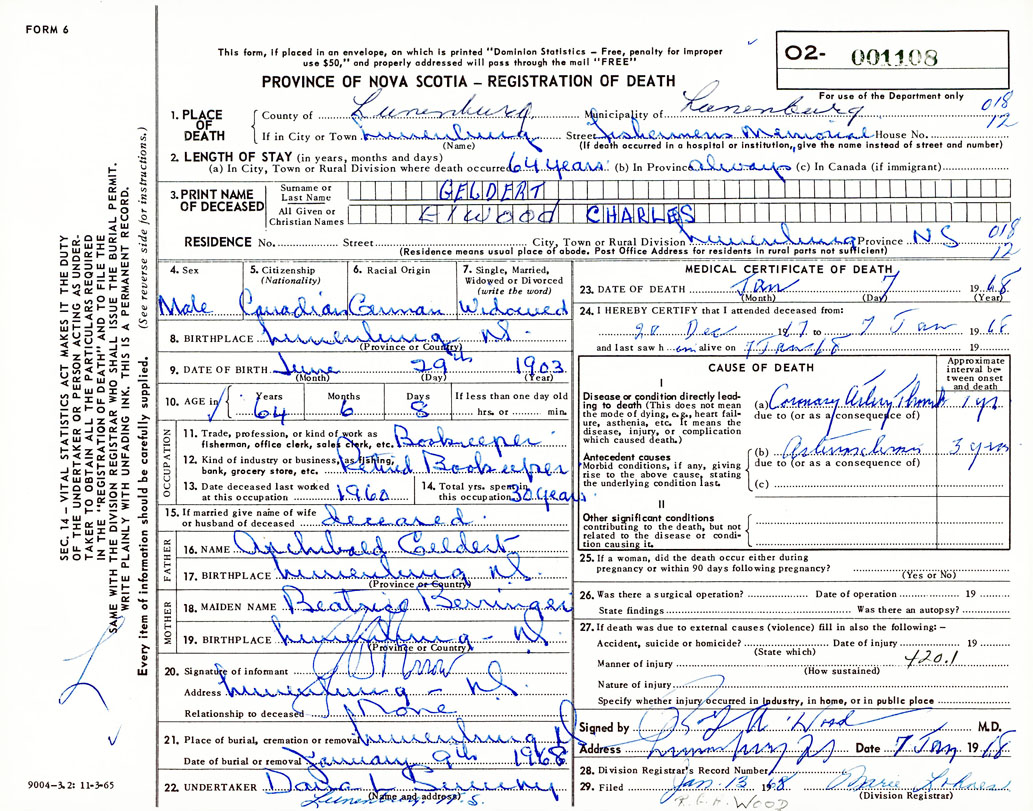 FORM 6
This form, if placed in an envelope, on which is printed "Dominion Statistics – Free, penalty for improper
use $50," and properly addressed will pass through the mail "FREE"
O2- 001108
For use of the Department only
PROVINCE OF NOVA SCOTIA – REGISTRATION OF DEATH
1. PLACE OF DEATH
County of Lunenburg Municipality of Lunenburg 018
If in City or Town Lunenburg Street Fishermens Memorial House No. 12
(Name) (If death occurred in a hospital or institution, give the name instead of street and number)
2. LENGTH OF STAY (in years, months and days)
(a) In City, Town or Rural Division where death occurred 64 years. (b) In Province always (c) In Canada (if immigrant)
3. PRINT NAME OF DECEASED
Surname or Last Name GELDERT
All Given or Christian Names Elwood CHARLES
RESIDENCE No. Street City, Town or Rural Division Lunenburg Province NS 018
(Residence means usual place of abode. Post Office Address for residents in rural parts not sufficient) 12
4. Sex
Male
5. Citizenship (Nationality)
Canadian
6. Racial Origin
German
7. Single, Married, Widowed or Divorced (write the word)
Widowed
8. BIRTHPLACE Lunenburg NS.
(Province or Country)
9. DATE OF BIRTH June 29th 1903
(Month) (Day) (Year)
10. AGE in Years Months Days If less than one day old
64 6 8 hrs. or min.
OCCUPATION
11. Trade, profession, or kind of work as
fisherman, office clerk, sales clerk, etc. Bookeeper
12. Kind of industry or business, as fishing,
bank, grocery store, etc. Retired Bookeeper
13. Date deceased last worked
at this occupation 1960
14. Total yrs. spent in
this occupation 30 years
15. If married give name of wife
or husband of deceased deceased.
FATHER
16. NAME Archibald Geldert
17. BIRTHPLACE Lunenburg NS.
(Province or Country)
MOTHER
18. MAIDEN NAME Beatrice Berringer
19. BIRTHPLACE Lunenburg – NS.
(Province or Country)
20. Signature of informant
Address Lunenburg – NS.
Relationship to deceased None
21. Place of burial, cremation or removal Lunenburg
Date of burial or removal January 9th 1968
22. UNDERTAKER
(Name and address)
MEDICAL CERTIFICATE OF DEATH
23. DATE OF DEATH Jan 7 1968
(Month) (Day) (Year)
24. I HEREBY CERTIFY that I attended deceased from:
20 Dec 1967 to 7 Jan 1968
and last saw him alive on 7 Jan 68 19
CAUSE OF DEATH
Approximate interval between onset and death
I
Disease or condition directly leading to death (This does not mean the mode of dying, e.g., heart failure, asthenia, etc. It means the disease, injury, or complication which caused death.)
(a) Coronary Artery Thromb 1 yr
due to (or as a consequence of)
Antecedent causes
Morbid conditions, if any, giving rise to the above cause, stating the underlying condition last.
(b) 3 yrs
due to (or as a consequence of)
(c)
II
Other significant conditions
contributing to the death, but not related to the disease or condition causing it.
25. If a woman, did the death occur either during
pregnancy or within 90 days following pregnancy?
(Yes or No)
26. Was there a surgical operation? Date of operation 19
State findings Was there an autopsy?
27. If death was due to external causes (violence) fill in also the following: –
Accident, suicide or homicide? Date of injury 19
(State which)
Manner of injury 420.1
(How sustained)
Nature of injury
Specify whether injury occurred in industry, in home, or in public place
Signed by Wood M.D.
Address Date 7 Jan 1968
28. Division Registrar's Record Number
29. Filed Jan. 13 1968 Marie
(Division Registrar)
WOOD
SEC. 14 – VITAL STATISTICS ACT MAKES IT THE DUTY
OF THE UNDERTAKER OR PERSON ACTING AS UNDER-
TAKER TO OBTAIN ALL THE PARTICULARS REQUIRED
IN THE "REGISTRATION OF DEATH" AND TO FILE THE
SAME WITH THE DIVISION REGISTRAR WHO SHALL ISSUE THE BURIAL PERMIT.
WRITE PLAINLY WITH UNFADING INK. THIS IS A PERMANENT RECORD.
Every item of information should be carefully supplied. (See reverse side for instructions.)
9004-3.2: 11-3-65